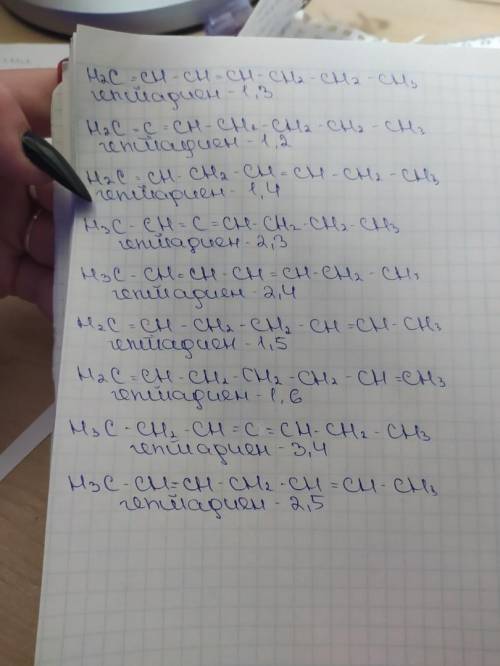 H₂C=CH-CH=CH-CH₂-CH₂-CH₃
гептадиен-1,3
H₂C=C=CH-CH₂-CH₂-CH₂-CH₃
гептадиен-1,2
H₂C=CH-CH₂-CH=CH-CH₂-CH₃
гептадиен-1,4
H₃C-CH=C=CH-CH₂-CH₂-CH₃
гептадиен-2,3
H₃C-CH=CH-CH=CH-CH₂-CH₃
гептадиен-2,4
H₂C=CH-CH₂-CH₂-CH=CH-CH₃
гептадиен-1,5
H₂C=CH-CH₂-CH₂-CH₂-CH=CH₃
гептадиен-1,6
H₃C-CH₂-CH=C=CH-CH₂-CH₃
гептадиен-3,4
H₃C-CH=CH-CH₂-CH=CH-CH₃
гептадиен-2,5